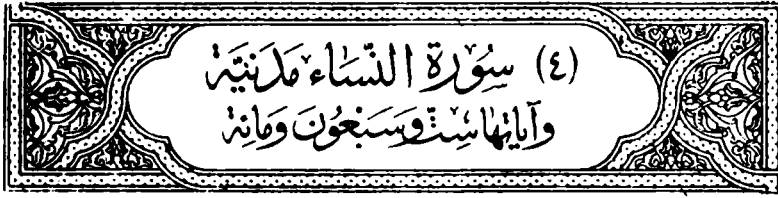 (٤) سُورَة النِّسَاء مَدَنيَّة
وآياتها ستّ وسَبْعُون ومائة